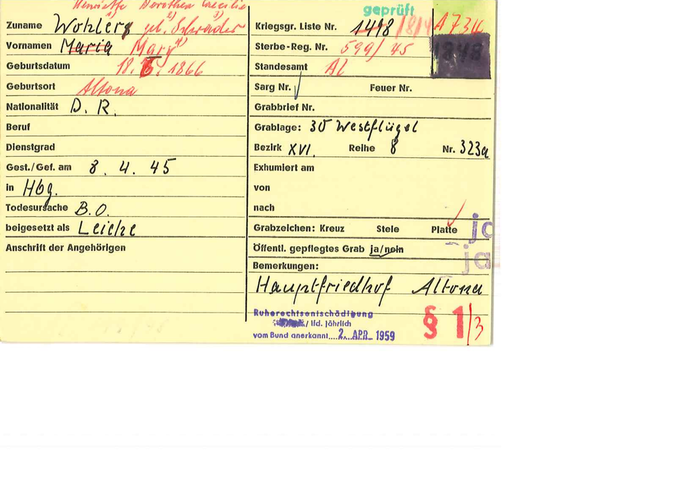 Henriette Dorothea Caecilie
Zuname Wohlers geb. Schrader
Vornamen Maria Mary
Geburtsdatum 18. 6. 1866
Geburtsort Altona
Nationalität D. R.
Beruf
Dienstgrad
Gest./Gef. am 8. 4. 45
in Hbg.
Todesursache B.O.
beigesetzt als Leiche
Anschrift der Angehörigen
geprüft
Kriegsgr. Liste Nr. 1498 1814 A 734
Sterbe-Reg. Nr. 599/45 1848
Standesamt Al
Sarg Nr. Feuer Nr.
Grabbrief Nr.
Grablage: 30 Westflügel
Bezirk XVI. Reihe 8 Nr. 323a
Exhumiert am
von
nach
Grabzeichen: Kreuz Stele Platte ja
Öffentl. gepflegtes Grab ja/nein ja
Bemerkungen:
Hauptfriedhof Altona
Ruherechtsentschädigung
/ lfd. jährlich
vom Bund anerkannt 2. APR. 1959
§ 1/3